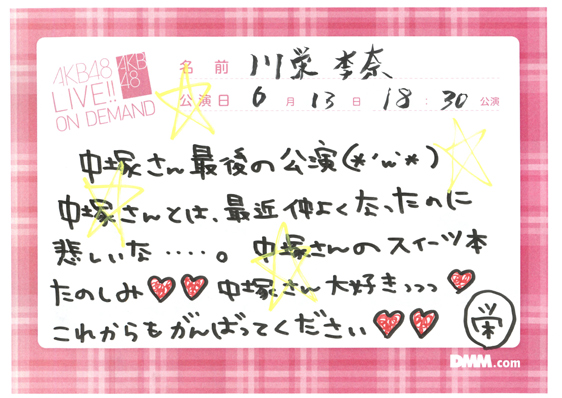 AKB48
LIVE!!
ON DEMAND
AKB
48
名前 川栄 李奈
公演日 6月 13日 18:30公演
中塚さん最後の公演(*'ω'*)
中塚さんとは、最近仲よくなったのに
悲しいな‥‥。中塚さんのスイーツ本
たのしみ♥♥ 中塚さん大好きっっっ♥
これからもがんばってください♥♥
栄
DMM.com